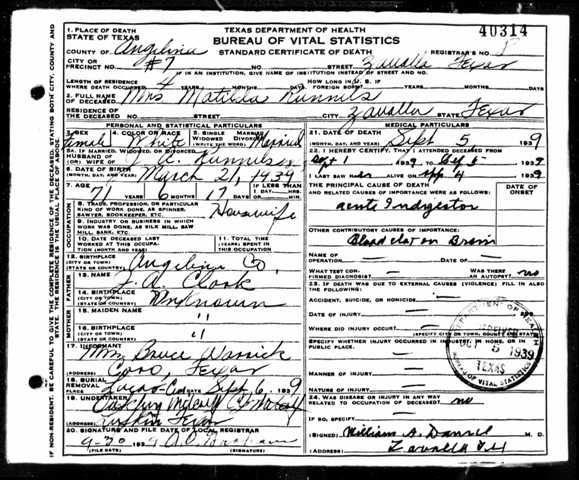 40314
1. PLACE OF DEATH
STATE OF TEXAS
TEXAS DEPARTMENT OF HEALTH
BUREAU OF VITAL STATISTICS
STANDARD CERTIFICATE OF DEATH
COUNTY OF Angelina
REGISTRAR'S NO. 1
CITY OR
PRECINCT NO. #7 NO. STREET Zavalla Texas
IF IN AN INSTITUTION, GIVE NAME OF INSTITUTION INSTEAD OF STREET AND NO.
LENGTH OF RESIDENCE
WHERE DEATH OCCURRED 4 YEARS MONTHS DAYS HOW LONG IN U. S. IF FOREIGN BORN? YEARS MONTHS DAYS
2. FULL NAME
OF DECEASED Mrs Matilda Runnels
RESIDENCE OF
THE DECEASED NO. STREET CITY Zavalla STATE Texas
PERSONAL AND STATISTICAL PARTICULARS
3. SEX Female
4. COLOR OR RACE White
5. SINGLE MARRIED
WIDOWED DIVORCED
(WRITE THE WORD) Married
5A. IF MARRIED, WIDOWED, OR DIVORCED
HUSBAND OF
(OR) WIFE OF J. A. Runnels
6. DATE OF BIRTH
(MONTH, DAY, AND YEAR) March 21,
7. AGE 71 YEARS 6 MONTHS 17 DAYS
IF LESS THAN
1 DAY
HRS.
MIN.
8. TRADE, PROFESSION, OR PARTICULAR
KIND OF WORK DONE, AS SPINNER,
SAWYER, BOOKKEEPER, ETC. Housewife
9. INDUSTRY OR BUSINESS IN WHICH
WORK WAS DONE, AS SILK MILL, SAW
MILL, BANK, ETC.
10. DATE DECEASED LAST
WORKED AT THIS OCCUPATION
(MONTH AND YEAR)
11. TOTAL TIME
(YEARS) SPENT IN
THIS OCCUPATION
12. BIRTHPLACE
(CITY OR TOWN)
(STATE OR COUNTRY) Angelina Co,
FATHER
13. NAME F. A. Clark
14. BIRTHPLACE
(CITY OR TOWN)
(STATE OR COUNTRY) Unknown
MOTHER
15. MAIDEN NAME "
16. BIRTHPLACE
(CITY OR TOWN)
(STATE OR COUNTRY) "
17. INFORMANT
Mrs Bruce
(ADDRESS) Texas
18. BURIAL
REMOVAL Sept 6, 1939
19. UNDERTAKER
(ADDRESS) Lufkin Texas
20. SIGNATURE AND FILE DATE OF LOCAL REGISTRAR
9-30 1939
(FILE DATE) (SIGNATURE)
MEDICAL PARTICULARS
21. DATE OF DEATH
(MONTH, DAY, AND YEAR) Sept 5 1939
22. I HEREBY CERTIFY, THAT I ATTENDED DECEASED FROM
Sept 1 1939 TO Sept 5 1939
I LAST SAW her ALIVE ON Sept 4 1939
THE PRINCIPAL CAUSE OF DEATH
AND RELATED CAUSES OF IMPORTANCE WERE AS FOLLOWS:
DATE OF
ONSET
acute Indigestion
OTHER CONTRIBUTORY CAUSES OF IMPORTANCE:
Blood clot on Brain
NAME OF
OPERATION DATE OF
WHAT TEST CONFIRMED
DIAGNOSIS? WAS THERE
AN AUTOPSY no
23. IF DEATH WAS DUE TO EXTERNAL CAUSES (VIOLENCE) FILL IN ALSO
THE FOLLOWING:
ACCIDENT, SUICIDE, OR HOMICIDE?
DATE OF INJURY
WHERE DID INJURY OCCUR?
(SPECIFY CITY OR TOWN, COUNTY AND STATE)
SPECIFY WHETHER INJURY OCCURRED IN INDUSTRY, IN HOME, OR IN
PUBLIC PLACE.
MANNER OF INJURY
NATURE OF INJURY
24. WAS DISEASE OR INJURY IN ANY WAY
RELATED TO OCCUPATION OF DECEASED? no
IF SO, SPECIFY
(SIGNED) William A. Daniel M. D.
(ADDRESS) Zavalla Tex
DEPARTMENT OF HEALTH
RECEIVED
OCT 5 1939
TEXAS
BUREAU OF VITAL STATISTICS